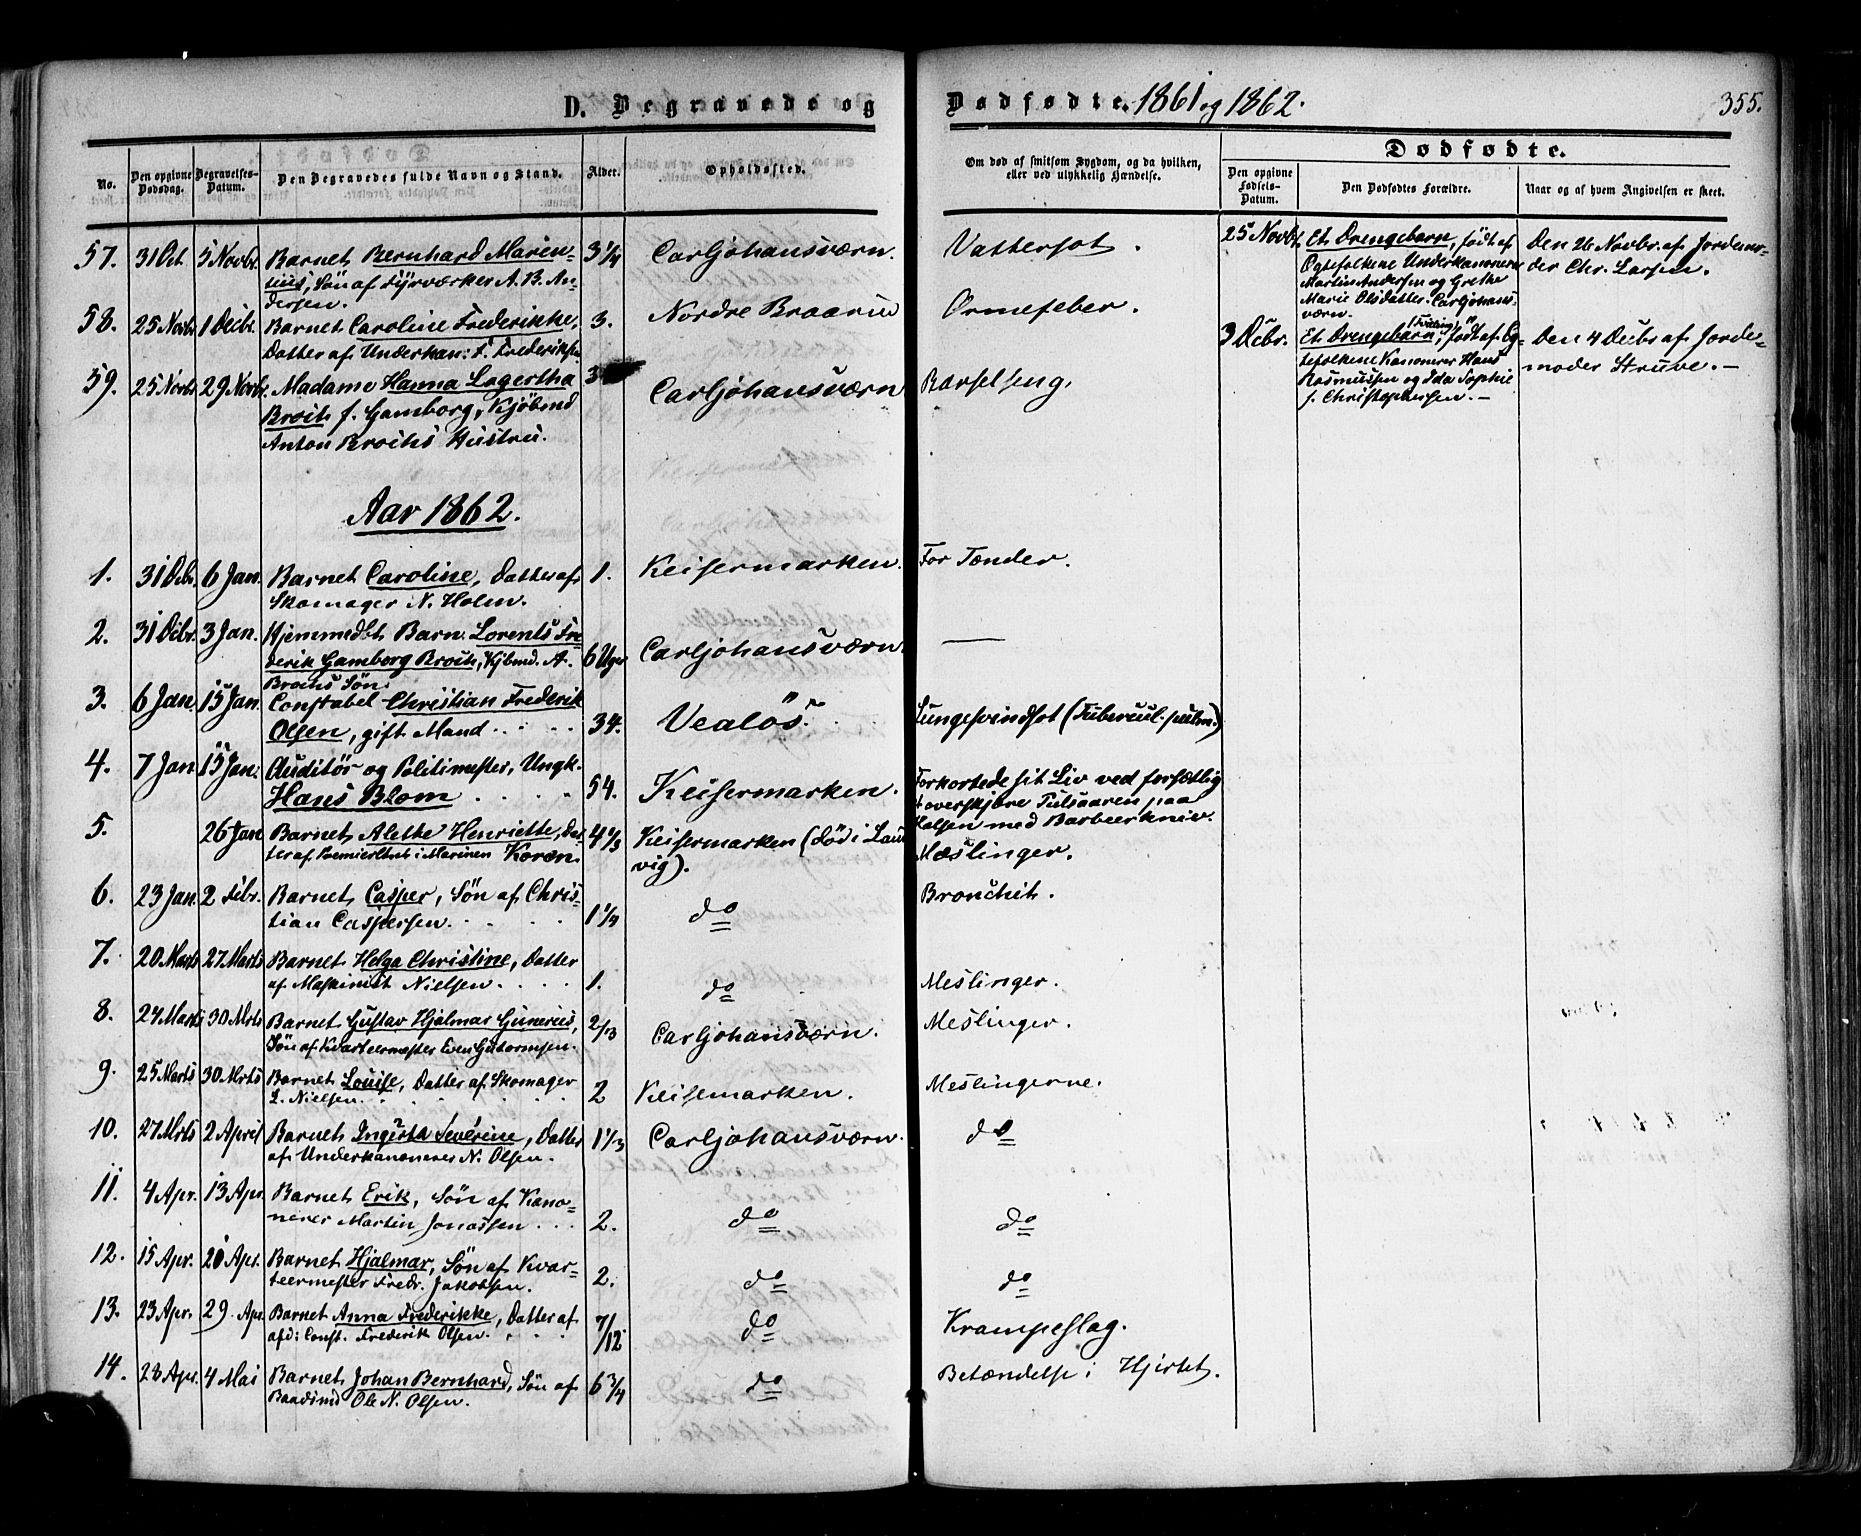 D. Begravede og Dødfødte. 1861 og 1862. 355.
No. Den opgivne Dødsdag. Begravelses-Datum. Den Begravedes fulde Navn og Stand. Alder. Opholdssted. Om død af smitsom Sygdom, og da hvilken, eller ved ulykkelig Hændelse. Dødfødte.
Den opgivne Fødsels-Datum. Den Dødfødtes Forældre. Naar og af hvem Angivelsen er skeet.
57. 31 Oct. 5 Novbr. Barnet Bernhard Marin- 3 1/4 Carljohansværn. Vattersot.
tius, Søn af Fyrværker A. B. An-
dersen.
58. 25 Novbr 1 Decbr. Barnet Caroline Frederikke, 3. Nordre Braarud Ormefeber.
Datter af Underkan: F. Frederiksen
59. 25 Novbr 29 Novbr. Madame Hanna Lagertha 3 Carljohansværn Barselseng.
Broch f. Gamborg, Kjøbmd
Anton Brochs Hustru.
25 Novbr. Et Drengebarn, født af Den 26 Novbr. af Jordemo-
Ægtefolkene Underkanoneer der Chr. Larsen.
Martin Andersen og Grethe
Marie Olsdatter. Carljohans-
værn.
3 Decbr. Et Drengebarn (Tvilling), født af Eg- Den 4 Decbr af Jorde-
tefolkene Kanoneer Hans moder Struve. –
Rasmussen og Ida Sophie
f. Christophersen. –
Aar 1862.
1. 31 Decbr. 6 Jan. Barnet Caroline, Datter af 1. Keisermarken. For Tænder.
Skomager N. Holm.
2. 31 Decbr. 3 Jan. Hjemmedbt Barn Lorents Fre- 6 Uger Carljohansværn. —
derik Gamborg Broch, Kjbmd. A.
Brochs Søn.
3. 6 Jan. 15 Jan. Constabel Christian Frederik 34. Vealøs. Lungesvindsot (Tubercul. pulm.)
Olsen, gift Mand
4. 7 Jan 15 Jan. Auditør og Politimester, Ungk. 54. Keisermarken. Forkortede sit Liv ved forsætlig
Hans Blom t overskjære Pulsaaren paa
Halsen med Barbeerkniv.
5. 26 Jan Barnet Alethe Henriette, Dat- 4 1/3 Keisermarken (død i Laur Mæslinger.
ter af Premierltnt i Marinen Koren. vig).
6. 23 Jan. 2 Febr. Barnet Casper, Søn af Chris- 1 1/4 do Bronchit.
tian Caspersen.
7. 20 Marts 27 Marts Barnet Helga Christine, Datter 1. do Meslinger.
af Maskinist Nielsen.
8. 24 Marts 30 Mrts Barnet Gustav Hjalmar Gunerius, 2/3 Carljohansværn. Meslinger.
Søn af Kvarteermester Even Guttormsen.
9. 25 Marts 30 Mrts Barnet Louise, Datter af Skomager 2 Keisemarken. Meslingerne.
L. Nielsen.
10. 27 Mrts 2 April Barnet Ingerta Severine, Datter 1 1/3 Carljohansværn. do
af Underkanoneer N. Olsen.
11. 4 Apr. 13 Apr. Barnet Erik, Søn af Kano- 2. do do
neer Martin Jonassen
12. 15 Apr. 20 Apr. Barnet Hjalmar, Søn af Kvar- 2. do do
teermester Fredr. Jakobsen.
13. 23 Apr. 29 Apr Barnet Anna Frederikke, Datter af 7/12 do Krampeslag.
afd: Const. Frederik Olsen.
14. 28 Apr. 4 Mai Barnet Johan Bernhard, Søn af 6 3/4 do Betændelse i Hjertet.
Baadsmd Ole N. Olsen.